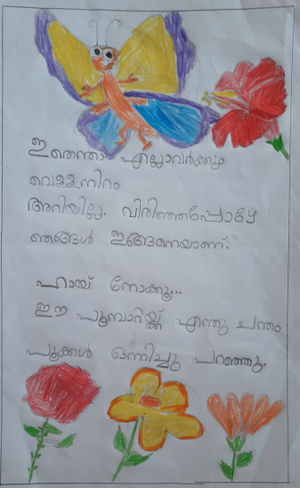 ഇതെന്താ എല്ലാവർക്കും
വെള്ളനിറം
അറിയില്ല. വിരിഞ്ഞപ്പോഴേ
ഞങ്ങൾ ഇങ്ങനെയാണ്.
ഹായ് നോക്കൂ...
ഈ പൂമ്പാറ്റയ്ക്ക് എന്തു ചന്തം
പൂക്കൾ ഒന്നിച്ചു പറഞ്ഞു.